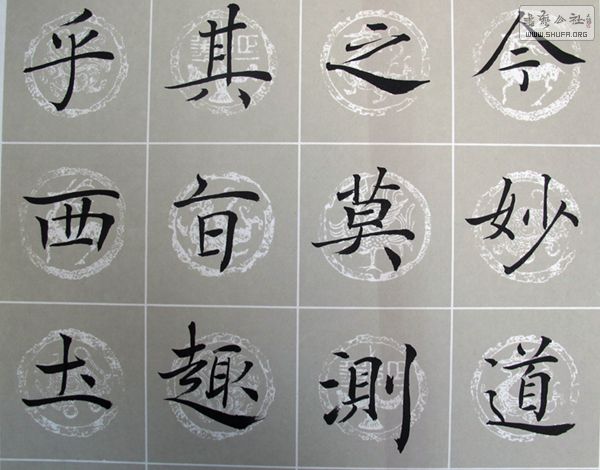 今妙道
之莫測
其旨趣
乎西土
書藝公社
WWW.SHUFA.ORG